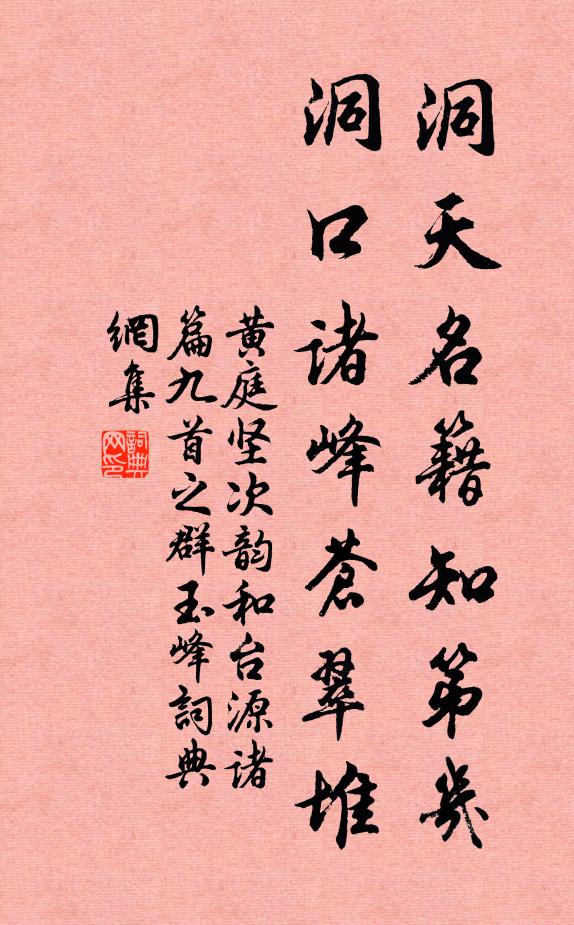 洞天名籍知第幾
洞口诸峰蒼翠堆
黄庭坚次韵和台源诸
篇九首之群玉峰詞典
網集
詞典
网印